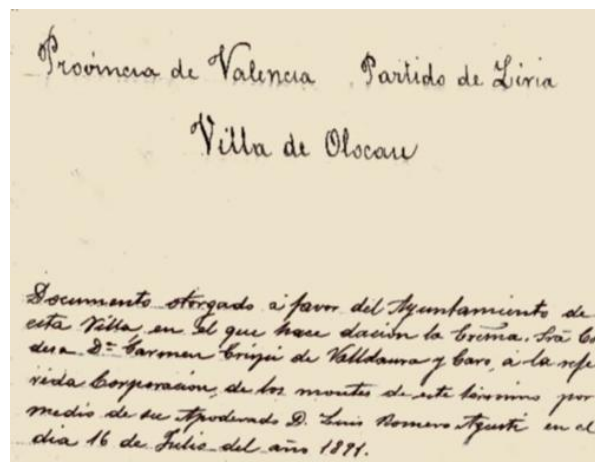 Provincia de Valencia Partido de Liria
Villa de Olocau
Documento otorgado á favor del Ayuntamiento de
esta Villa, en el que hace dación la Excma. Sra Co
desa Dª Carmen Crispi de Valldaura y Caro, á la refe
rida Corporación, de los montes de este término por
medio de su Apoderado D. Luis Romero Agustí en el
dia 16 de Julio del año 1891.